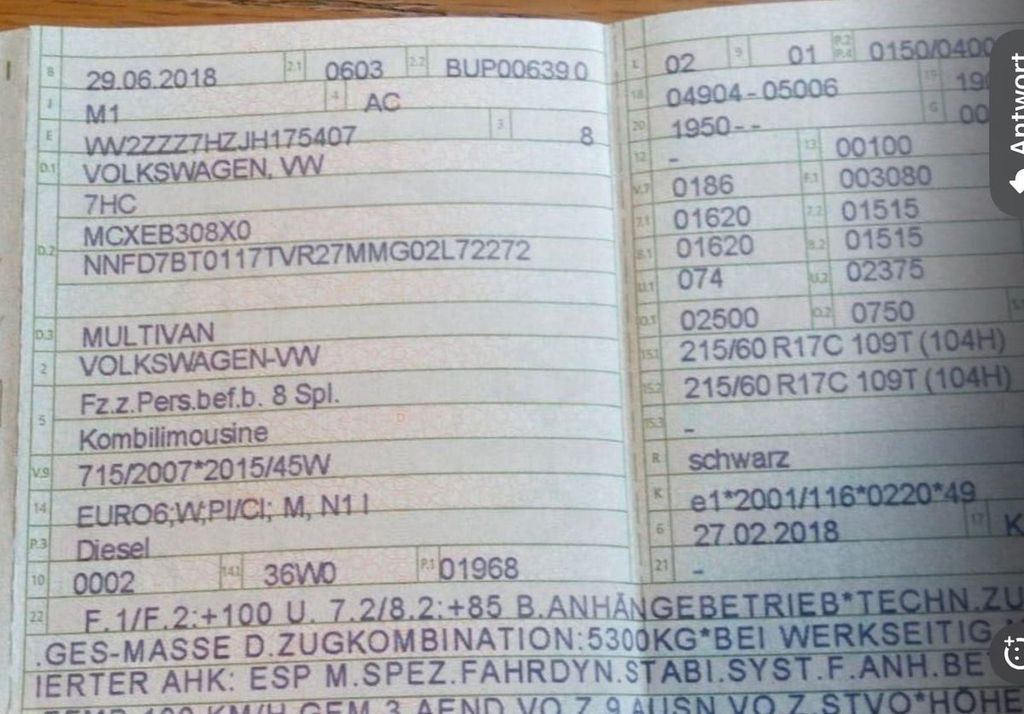 B 29.06.2018 2.1 0603 2.2 BUP006390
J M1 4 AC
E WV2ZZZ7HZJH175407 3 8
D.1 VOLKSWAGEN, VW
7HC
D.2 MCXEB308X0
NNFD7BT0117TVR27MMG02L72272
D.3 MULTIVAN
2 VOLKSWAGEN-VW
5 Fz.z.Pers.bef.b. 8 Spl.
Kombilimousine
V.9 715/2007*2015/45W
14 EURO6;W;PI/CI; M, N1 I
P.3 Diesel
10 0002 14.1 36W0 P.1 01968
L 02 9 01 P.2 P.4 0150/0400
18 04904-05006 19
20 1950-- G
12 - 13 00100
V.7 0186 F.1 003080
7.1 01620 7.2 01515
8.1 01620 8.2 01515
U.1 074 U.2 02375
O.1 02500 O.2 0750
15.1 215/60 R17C 109T (104H)
15.2 215/60 R17C 109T (104H)
15.3 -
R schwarz
K e1*2001/116*0220*49
6 27.02.2018 17 K
21 -
22 F.1/F.2:+100 U. 7.2/8.2:+85 B.ANHÄNGEBETRIEB*TECHN.ZU
.GES-MASSE D.ZUGKOMBINATION:5300KG*BEI WERKSEITIG
IERTER AHK: ESP M.SPEZ.FAHRDYN.STABI.SYST.F.ANH.BE
100 KM/H GEM.3.AEND.VO Z.9.AUSN.VO Z.STVO*HÖHE
Antwort